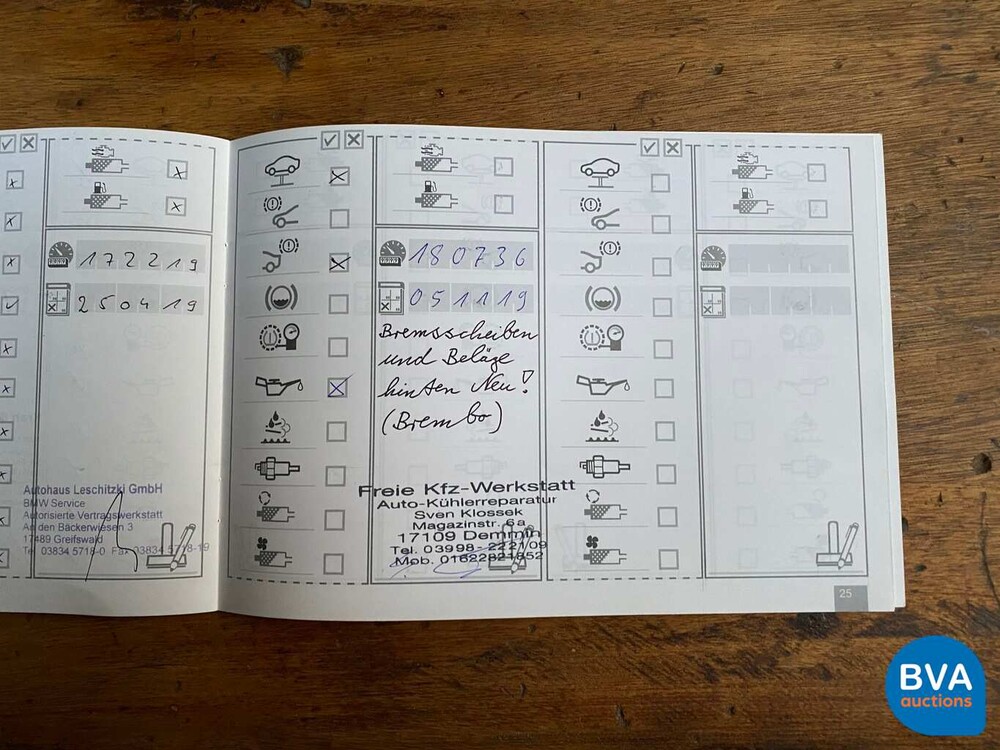 172219
250419
Autohaus Leschitzki GmbH
BMW Service
Autorisierte Vertragswerkstatt
An den Bäckerwiesen 3
17489 Greifswald
Tel. 03834 5718-0 Fax 03834 5718-19
180736
051119
Bremsscheiben
und Beläge
hinten Neu!
(Brembo)
Freie Kfz-Werkstatt
Auto-Kühlerreparatur
Sven Klossek
Magazinstr. 6a
17109 Demmin
Tel. 03998-222109
Mob.
25
BVA
auctions